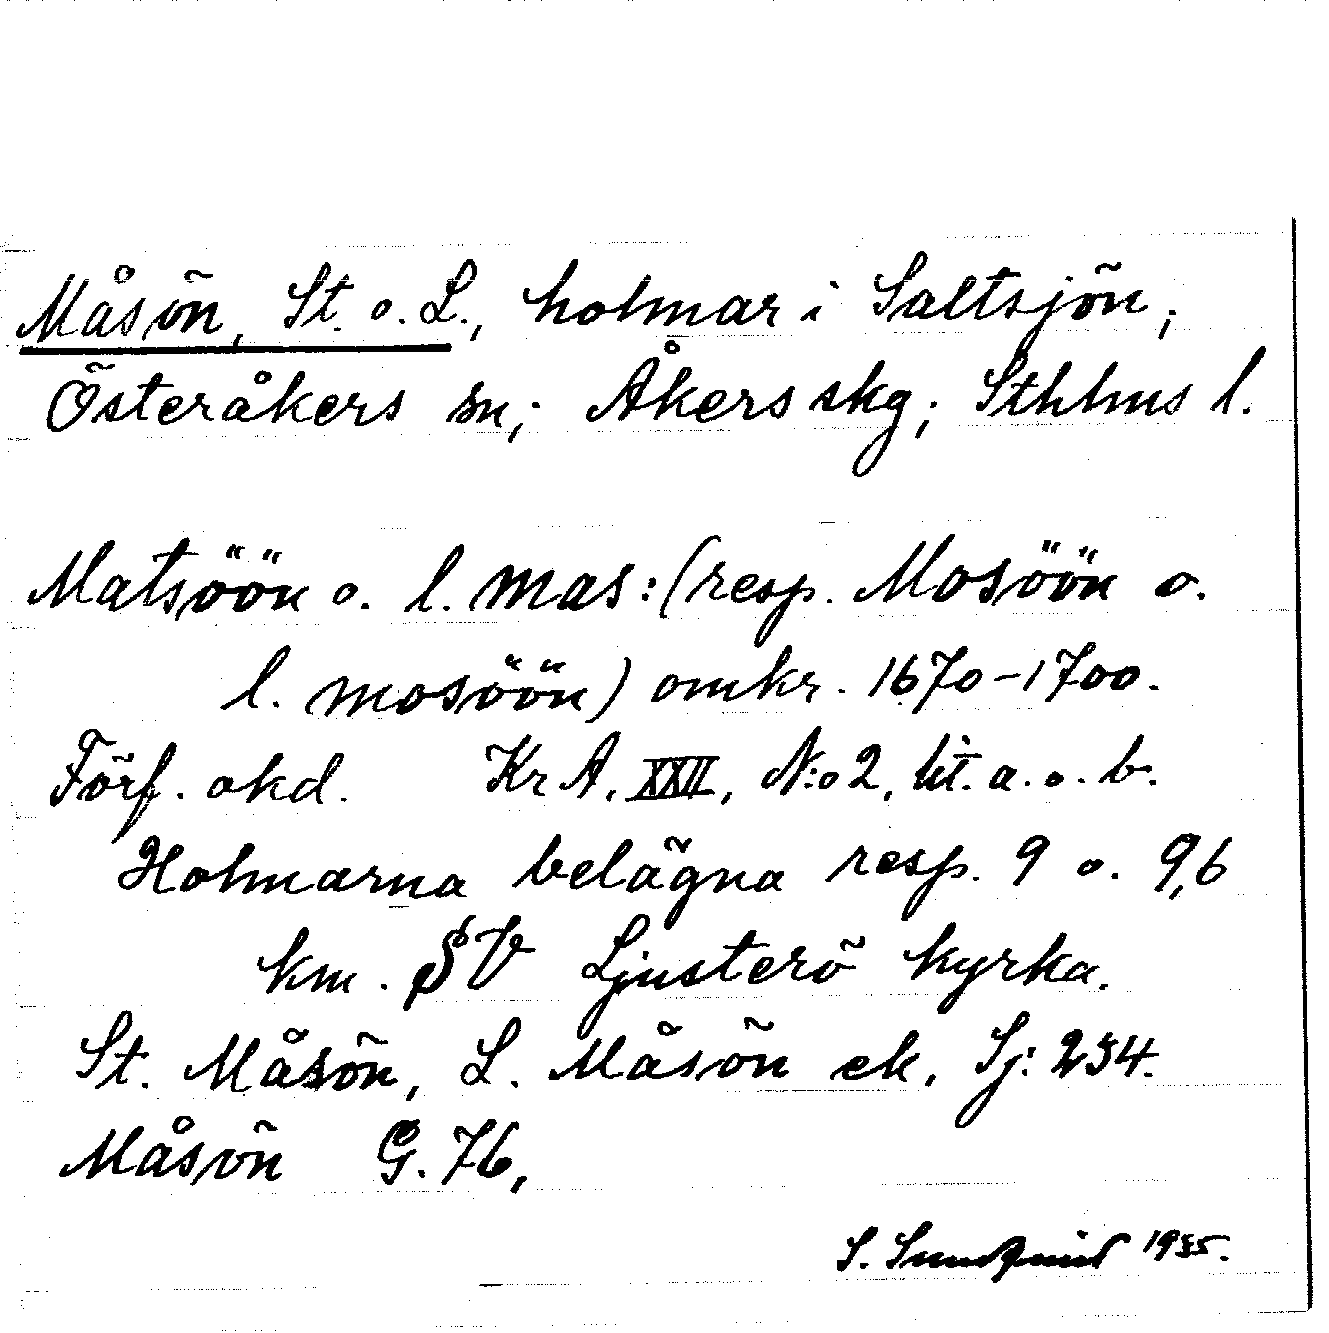 Måsön, St. o. L., holmar i Saltsjön;
Österåkers sn; Åkers skg; Sthlms l.
Matsöön o. l. mas: (resp. Mosöön o.
l. mosöön) omkr. 1670-1700.
Förf. okd. Kr A. XXII, N:o 2, lit. a. o. b.
Holmarna belägna resp. 9 o. 9,6
km. SV Ljusterö kyrka.
St. Måsön, L. Måsön ek. Sj: 234.
Måsön G. 76,
S. Sundquist 1935.